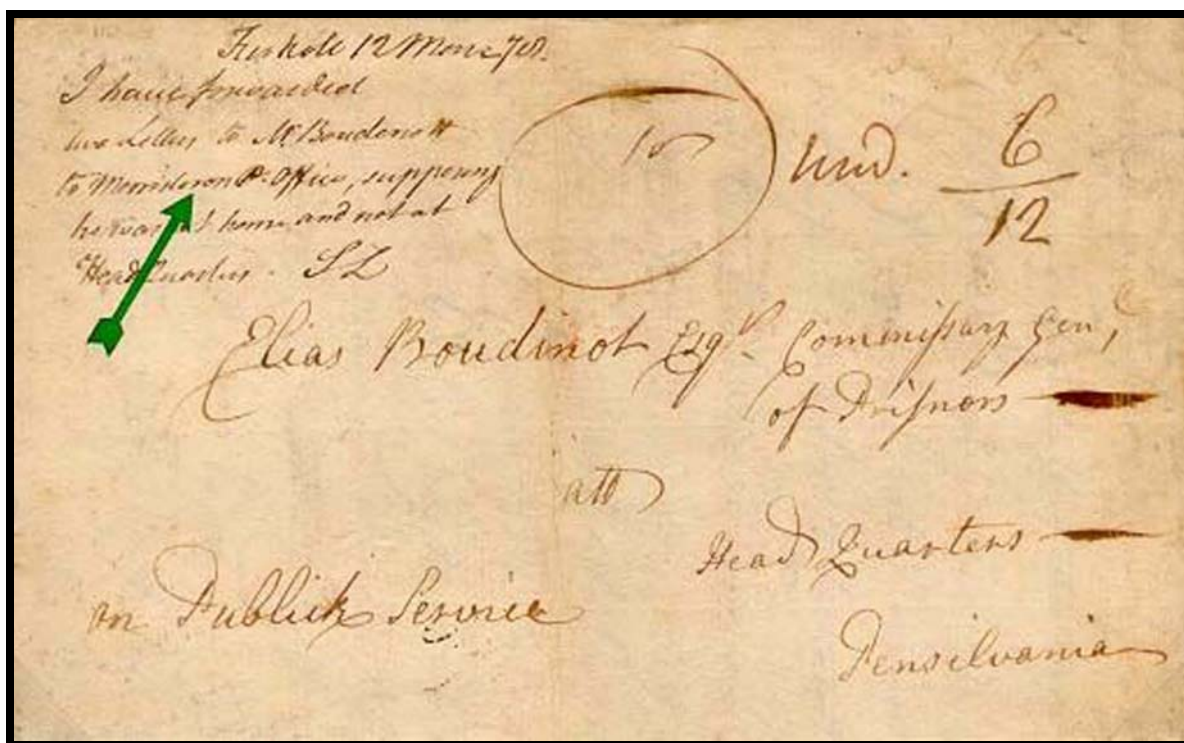 I have forwarded
two Letters to Mr. Boudenott
to Morristown P. Office, supposing
he was at home and not at
Head Quarters. SL
und. 6
12
Elias Boudinot Esqr. Commissary Genl
of Prisnors
att
Head Quarters
on Publick Service
Pensilvania